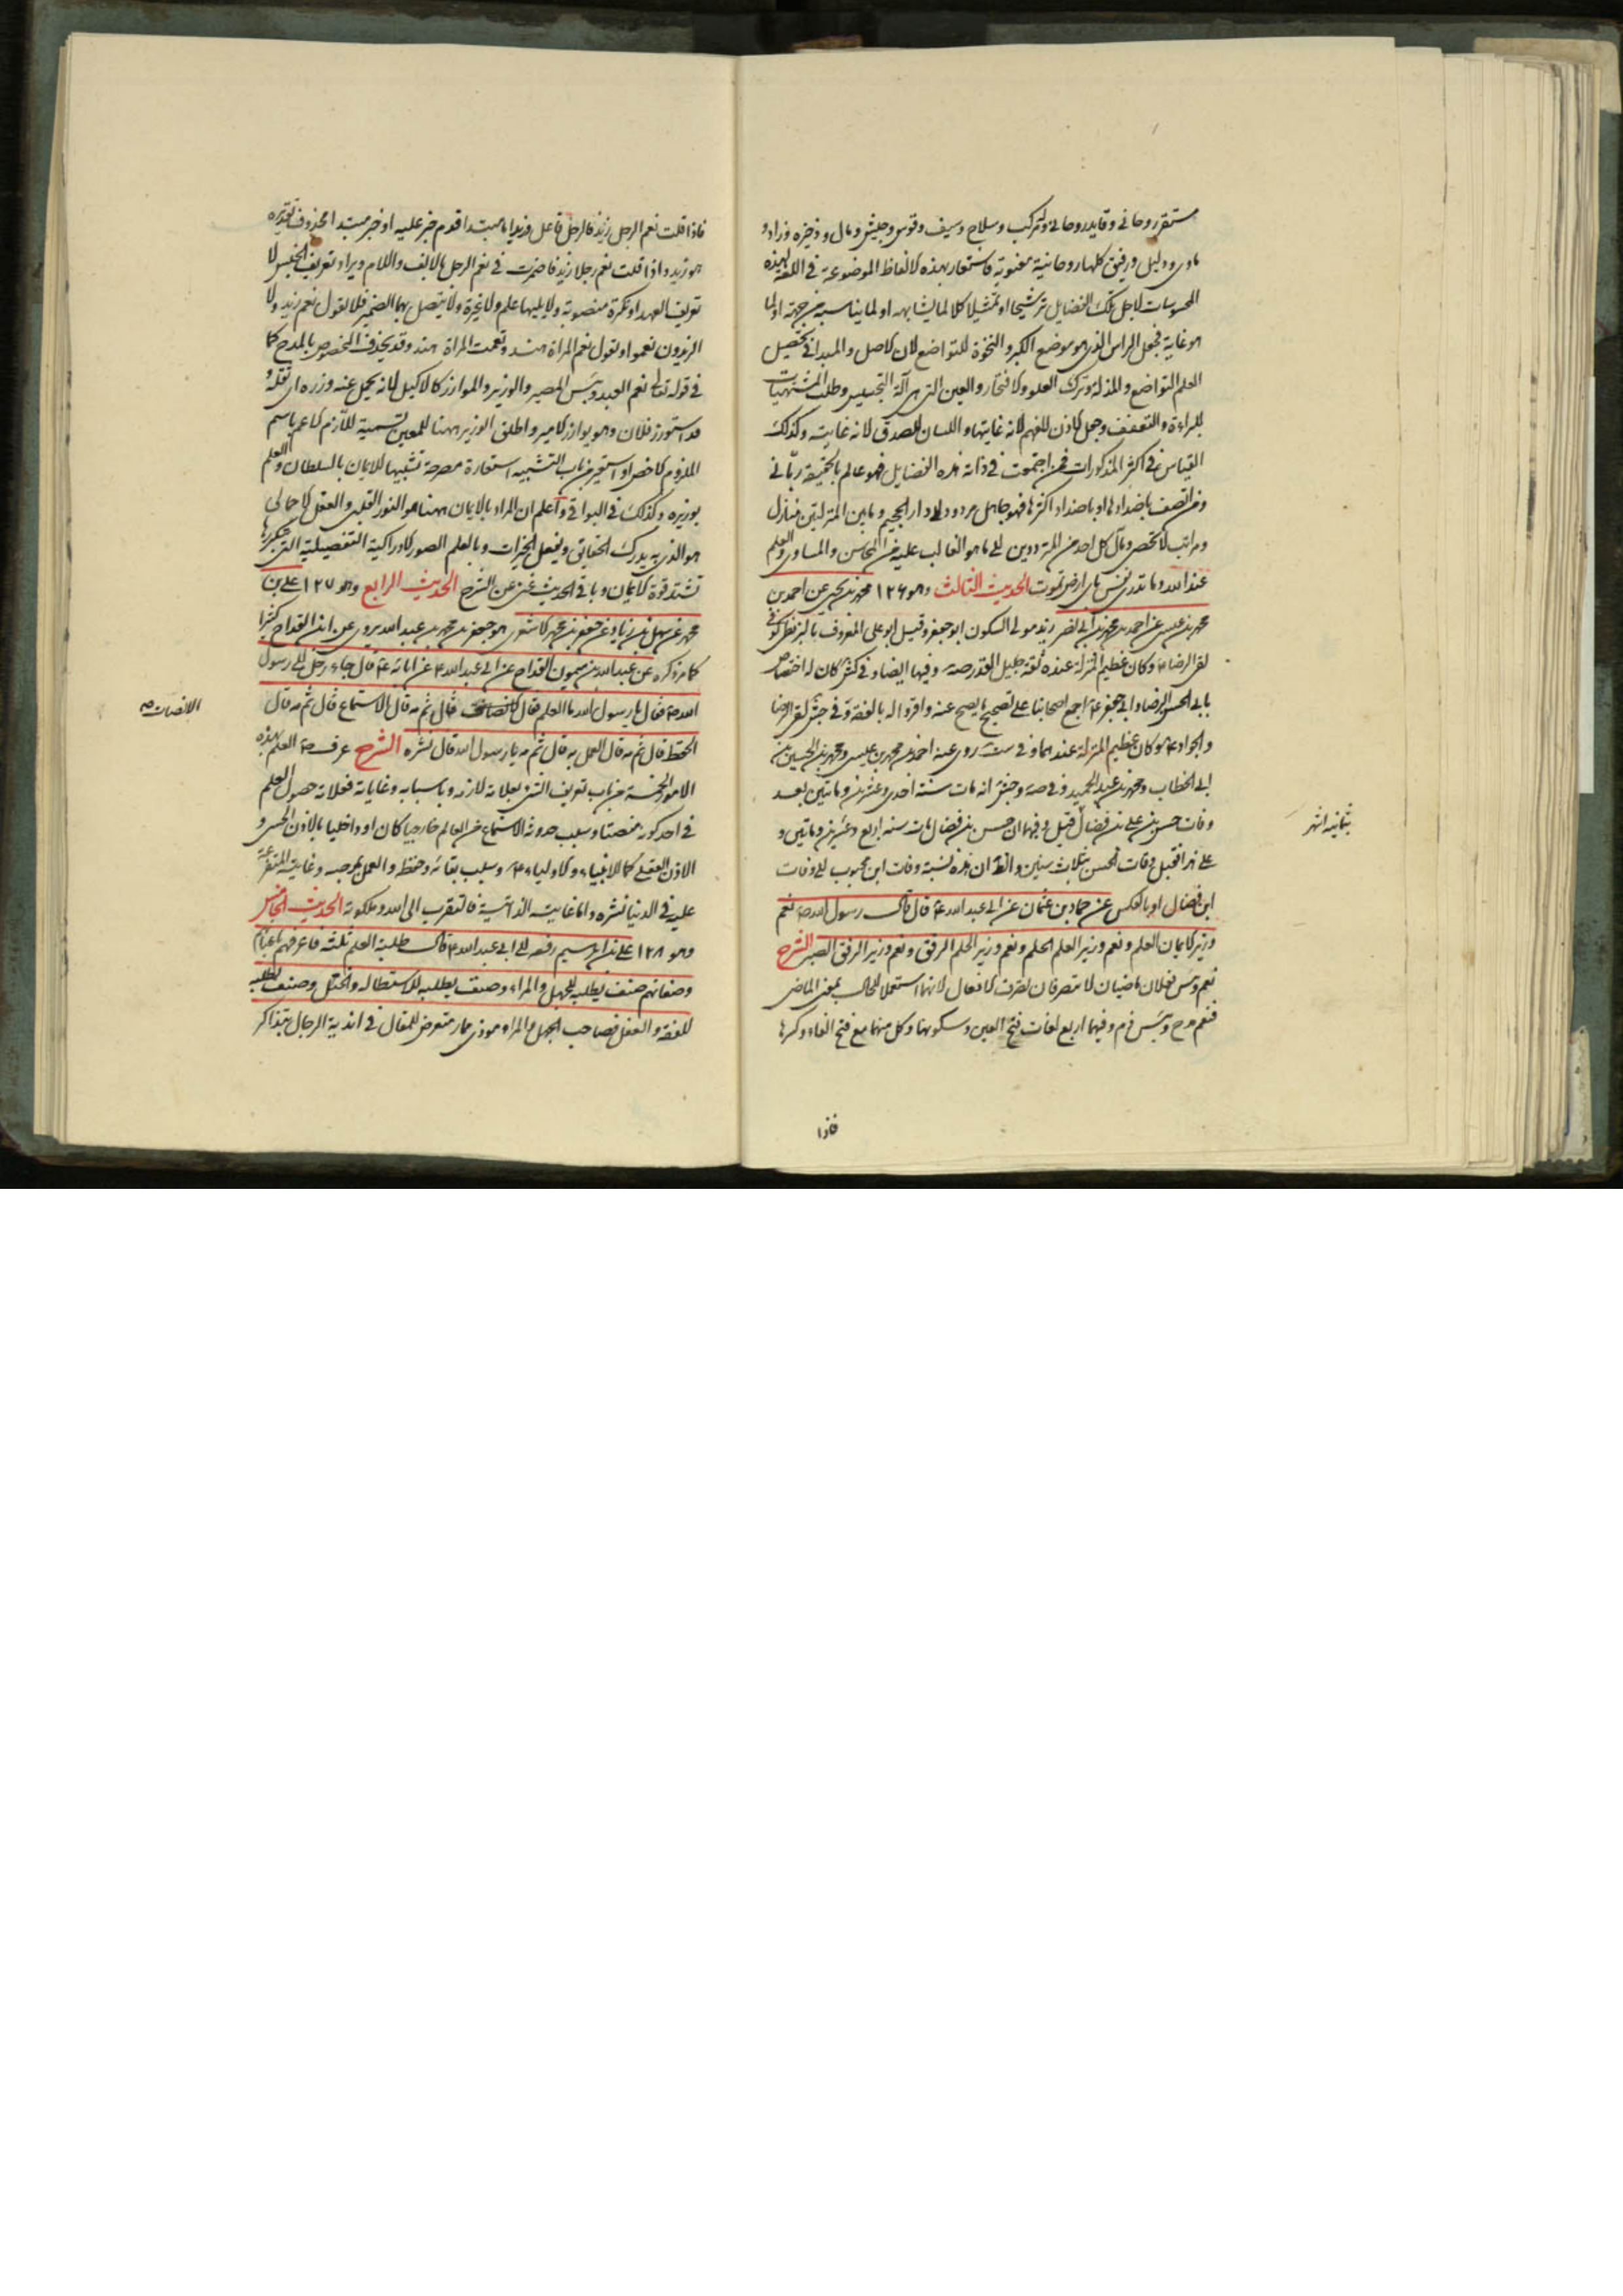 مستقر روحانى وقايد روحانى ومركب وسلاح وسيف وقوس وجيش ومال وذخيرة وزاد و
ماوى ودليل ورفيق كلها روحانية معنوية فاستعار بهذه الالفاظ الموضوعة فى اللغة لهذه
المحسوسات لاجل تلك الفضايل ترشيحا او تمثيلا كلا لما يشابهه او لما يناسبه من جهة او لما
هو غاية فجعل الراس الذى هو موضع الكبر والنخوة للتواضع لان الاصل والمبدا فى تحصيل
العلم التواضع والمذلة وترك العلو والافتخار والعين التى هى آلة التجسيس وطلب المشتهيات
للبراءة والتعفف وجعل الاذن للفهم لانه غايتها واللسان للصدق لانه غايته وكذلك
القياس فى اكثر المذكورات فمن اجتمعت فى ذاته هذه الفضايل فهو عالم بالحقيقة ربانى
ومن اتصف باضدادها او باضداد اكثرها فهو جاهل مردود الى دار الجحيم وما بين المنزلتين منازل
ومراتب لا تحصى ومآل كل احد من المترددين الى ما هو الغالب عليه من المحاسن والمساوى والعلم
عند الله وما تدرى نفس باى ارض تموت الحديث الثالث وهو ١٢٦ محمد بن يحيى عن احمد بن
محمد بن عيسى عن احمد بن محمد بن ابى نصر زيد مولى السكون ابو جعفر وقيل ابو على المعروف بالبزنطى كوفى
لقى الرضا ع وكان عظيم المنزلة عنده ثقة جليل القدر صه وفيها ايضا وفى كش كان له اختصاص
بابى الحسن الرضا وابى جعفر ع اجمع اصحابنا على تصحيح ما يصح عنه واقروا له بالفقه وفى جش لقى الرضا
والجواد ع وكان عظيم المنزلة عندهما وفى ست روى عنه احمد بن محمد بن عيسى ومحمد بن الحسين بن
ابى الخطاب ومحمد بن عبد الحميد وفى صه وجش انه مات سنة احدى وعشرين وماتين بعد
وفات حسن بن على بن فضال قيل وفيها ان حسن بن فضال مات سنة اربع وعشرين وماتين و
على هذا فقبل وفات الحسن بثلاث سنين والظ ان هذه نسبة وفات ابن محبوب الى وفات
ابن فضال او بالعكس عن حماد بن عثمان عن ابى عبد الله ع قال قال رسول الله ص نعم
وزير الايمان العلم ونعم وزير العلم الحلم ونعم وزير الحلم الرفق ونعم وزير الرفق الصبر الشرح
نعم وبئس فعلان ماضيان لا متصرفان تصرف الافعال لانهما استعملا للحال بمعنى الماضى
فنعم مدح وبئس ذم وفيهما اربع لغات فتح العين وسكونها وكل منهما مع فتح الفاء وكسرها
فاذا
بثمانية اشهر
فاذا قلت نعم الرجل زيد فالرجل فاعل وزيد اما مبتدا قدم خبر عليه او خبر مبتدا محذوف تقديره
هو زيد واذا قلت نعم رجلا زيد فاضمرت فى نعم الرجل بالالف واللام ويراد تعريف الجنس لا
تعريف العهد او نكرة منصوبة ولا يليها علم ولا غيره ولا يتصل بهما الضمير فلا تقول نعم زيد ولا
الزيدون نعموا وتقول نعم المراة هند ونعمت المراة هند وقد يحذف المخصوص بالمدح كما
فى قوله تعالى نعم العبد وبئس المصير والوزير والموازر كالاكيل لانه يحمل عنه وزره اى ثقله و
قد استوزر فلان وهو يوازر الامير واطلق الوزير ههنا للمعين تسمية لللازم الاعم باسم
الملزوم الاخص او استعير من باب التشبيه استعارة مصرحة تشبيها للايمان بالسلطان والعلم
بوزيره وكذلك فى البواقى واعلم ان المراد بالايمان ههنا هو النور القلبى والعقل الاجمالى
هو الذى به يدرك الحقايق ويفعل الخيرات وبالعلم الصور الادراكية التفصيلية التى بتكررها
تشتد قوة الايمان وباقى الحديث غنى عن الشرح الحديث الرابع وهو ١٢٧ على بن
محمد عن سهل بن زياد عن جعفر بن محمد الاشعرى هو جعفر بن محمد بن عبد الله يروى عن ابن القداح كثيرا
كما مر ذكره عن عبد الله بن ميمون القداح عن ابى عبد الله ع عن آبائه ع قال جاء رجل الى رسول
الله ص فقال يا رسول الله ما العلم قال الانصات قال ثم مه قال الاستماع قال ثم مه قال
الحفظ قال ثم مه قال العمل به قال ثم مه يا رسول الله قال نشره الشرح عرف ص العلم بهذه
الامور الخمسة من باب تعريف الشئ بعلاماته لازمه وباسبابه وغاياته فعلامة حصول العلم
فى احد كونه منصتا وسبب حدوثه الاستماع من العالم خارجيا كان او داخليا بالاذن الحسى و
الاذن العقلى كما للانبياء والاولياء ع وسبب بقائه وحفظه والعمل بموجبه وغايته المتفرعة
عليه فى الدنيا نشره واما غايته الذاتية فالتقرب الى الله وملكوته الحديث الخامس
وهو ١٢٨ على بن ابرهيم رفعه الى ابى عبد الله ع قال طلبة العلم ثلثة فاعرفهم باعيانهم
وصفاتهم صنف يطلبه للجهل والمراء وصنف يطلبه للاستطالة والختل وصنف يطلبه
للفقه والعقل فصاحب الجهل والمراء موذى ممار متعرض للمقال فى اندية الرجال بتذاكر
الانصات صه